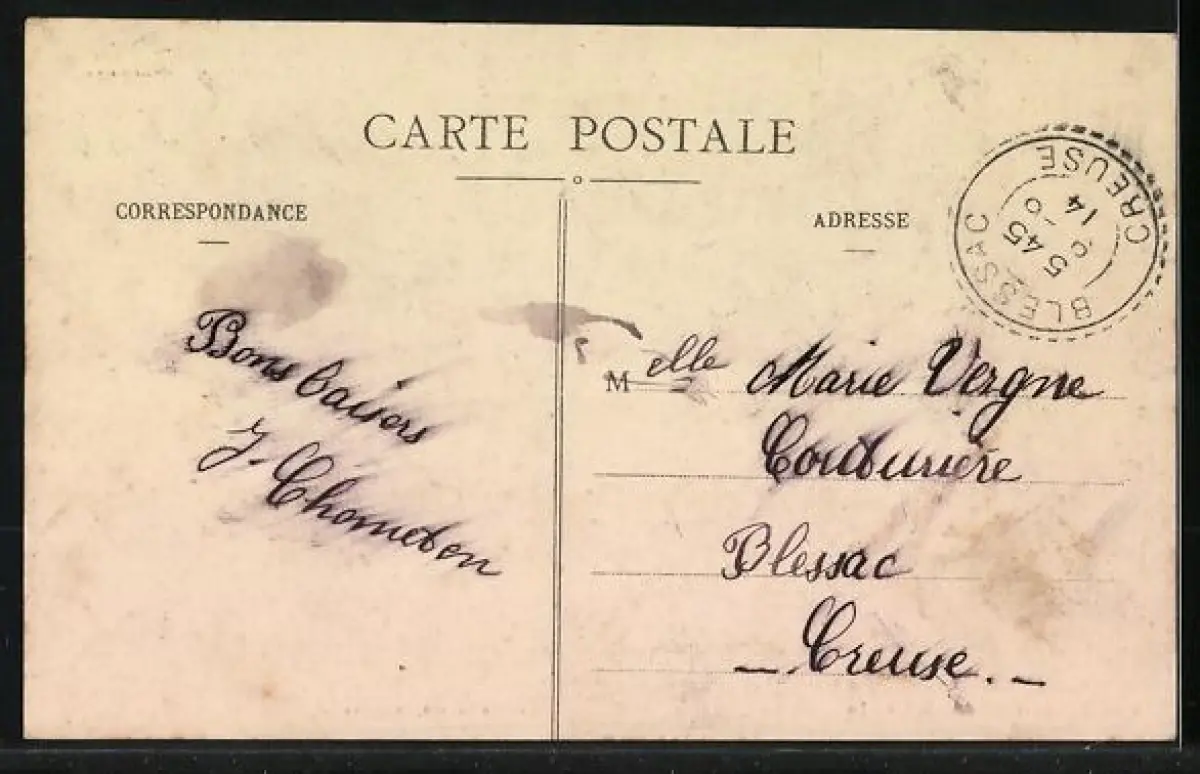 CARTE POSTALE
CORRESPONDANCE
ADRESSE
BLESSAC CREUSE
5 45
14
Bons baisers
J. Chometon
Melle Marie Vergne
Couturière
Blessac
- Creuse. -